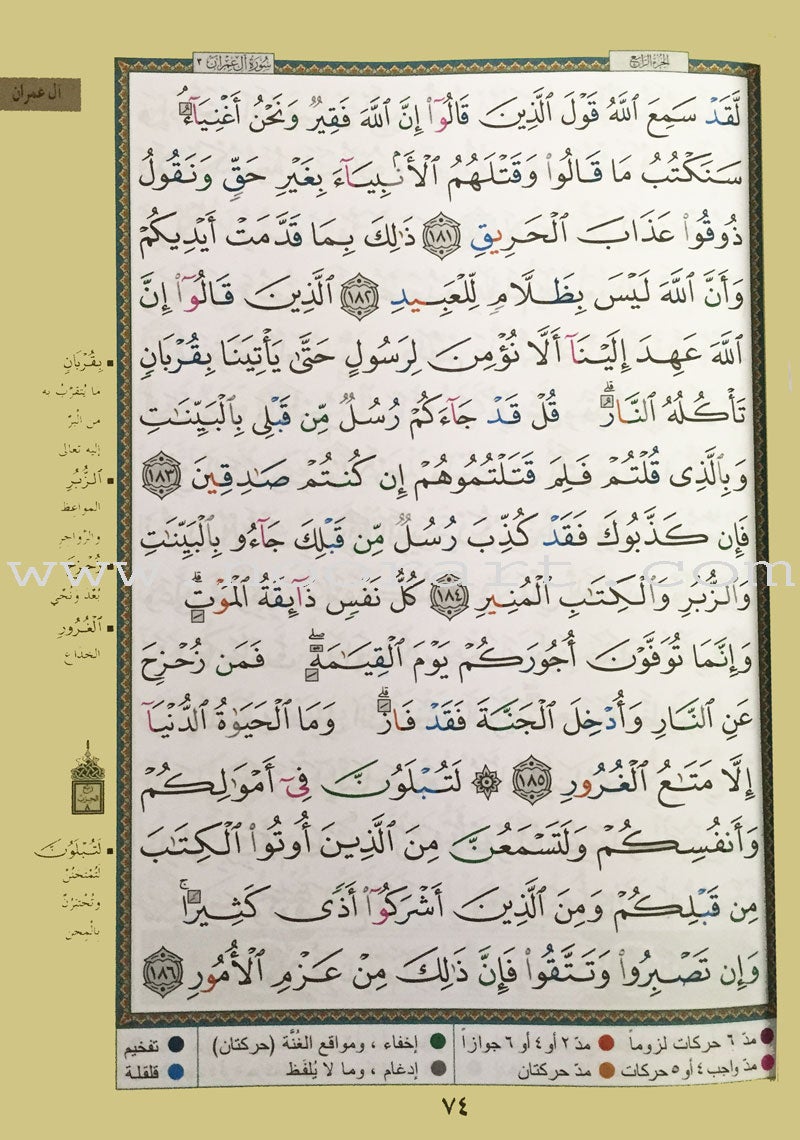 الجزء الرابع
سورة آل عمران ٣
آل عمران
لَّقَدْ سَمِعَ ٱللَّهُ قَوْلَ ٱلَّذِينَ قَالُوٓا۟ إِنَّ ٱللَّهَ فَقِيرٌ وَنَحْنُ أَغْنِيَآءُ
سَنَكْتُبُ مَا قَالُوا۟ وَقَتْلَهُمُ ٱلْأَنۢبِيَآءَ بِغَيْرِ حَقٍّ وَنَقُولُ
ذُوقُوا۟ عَذَابَ ٱلْحَرِيقِ ١٨١ ذَٰلِكَ بِمَا قَدَّمَتْ أَيْدِيكُمْ
وَأَنَّ ٱللَّهَ لَيْسَ بِظَلَّامٍ لِّلْعَبِيدِ ١٨٢ ٱلَّذِينَ قَالُوٓا۟ إِنَّ
ٱللَّهَ عَهِدَ إِلَيْنَآ أَلَّا نُؤْمِنَ لِرَسُولٍ حَتَّىٰ يَأْتِيَنَا بِقُرْبَانٍ
تَأْكُلُهُ ٱلنَّارُ ۗ قُلْ قَدْ جَآءَكُمْ رُسُلٌ مِّن قَبْلِى بِٱلْبَيِّنَٰتِ
وَبِٱلَّذِى قُلْتُمْ فَلِمَ قَتَلْتُمُوهُمْ إِن كُنتُمْ صَٰدِقِينَ ١٨٣
فَإِن كَذَّبُوكَ فَقَدْ كُذِّبَ رُسُلٌ مِّن قَبْلِكَ جَآءُو بِٱلْبَيِّنَٰتِ
وَٱلزُّبُرِ وَٱلْكِتَٰبِ ٱلْمُنِيرِ ١٨٤ كُلُّ نَفْسٍ ذَآئِقَةُ ٱلْمَوْتِ ۗ
وَإِنَّمَا تُوَفَّوْنَ أُجُورَكُمْ يَوْمَ ٱلْقِيَٰمَةِ ۖ فَمَن زُحْزِحَ
عَنِ ٱلنَّارِ وَأُدْخِلَ ٱلْجَنَّةَ فَقَدْ فَازَ ۗ وَمَا ٱلْحَيَوٰةُ ٱلدُّنْيَآ
إِلَّا مَتَٰعُ ٱلْغُرُورِ ١٨٥ ۞ لَتُبْلَوُنَّ فِىٓ أَمْوَٰلِكُمْ
وَأَنفُسِكُمْ وَلَتَسْمَعُنَّ مِنَ ٱلَّذِينَ أُوتُوا۟ ٱلْكِتَٰبَ
مِن قَبْلِكُمْ وَمِنَ ٱلَّذِينَ أَشْرَكُوٓا۟ أَذًى كَثِيرًا ۚ
وَإِن تَصْبِرُوا۟ وَتَتَّقُوا۟ فَإِنَّ ذَٰلِكَ مِنْ عَزْمِ ٱلْأُمُورِ ١٨٦
بِقُرْبَانٍ
ما يُتقرّبُ به
من البرّ
إليه تعالى
ٱلزُّبُرِ
المواعظ
والزّواجر
زُحْزِحَ
بُعّد ونُحّي
ٱلْغُرُورِ
الخداع
ربع
الحزب
٨
لَتُبْلَوُنَّ
لتُمْتحنُنّ
وتُختبَرُنّ
بالمِحن
مدّ ٦ حركات لزوماً
مدّ ٢ أو ٤ أو ٦ جوازاً
إخفاء ، ومواقع الغُنَّة (حركتان)
تفخيم
مدّ واجب ٤ أو ٥ حركات
مدّ حركتان
إدغام ، وما لا يُلفَظ
قلقلة
٧٤